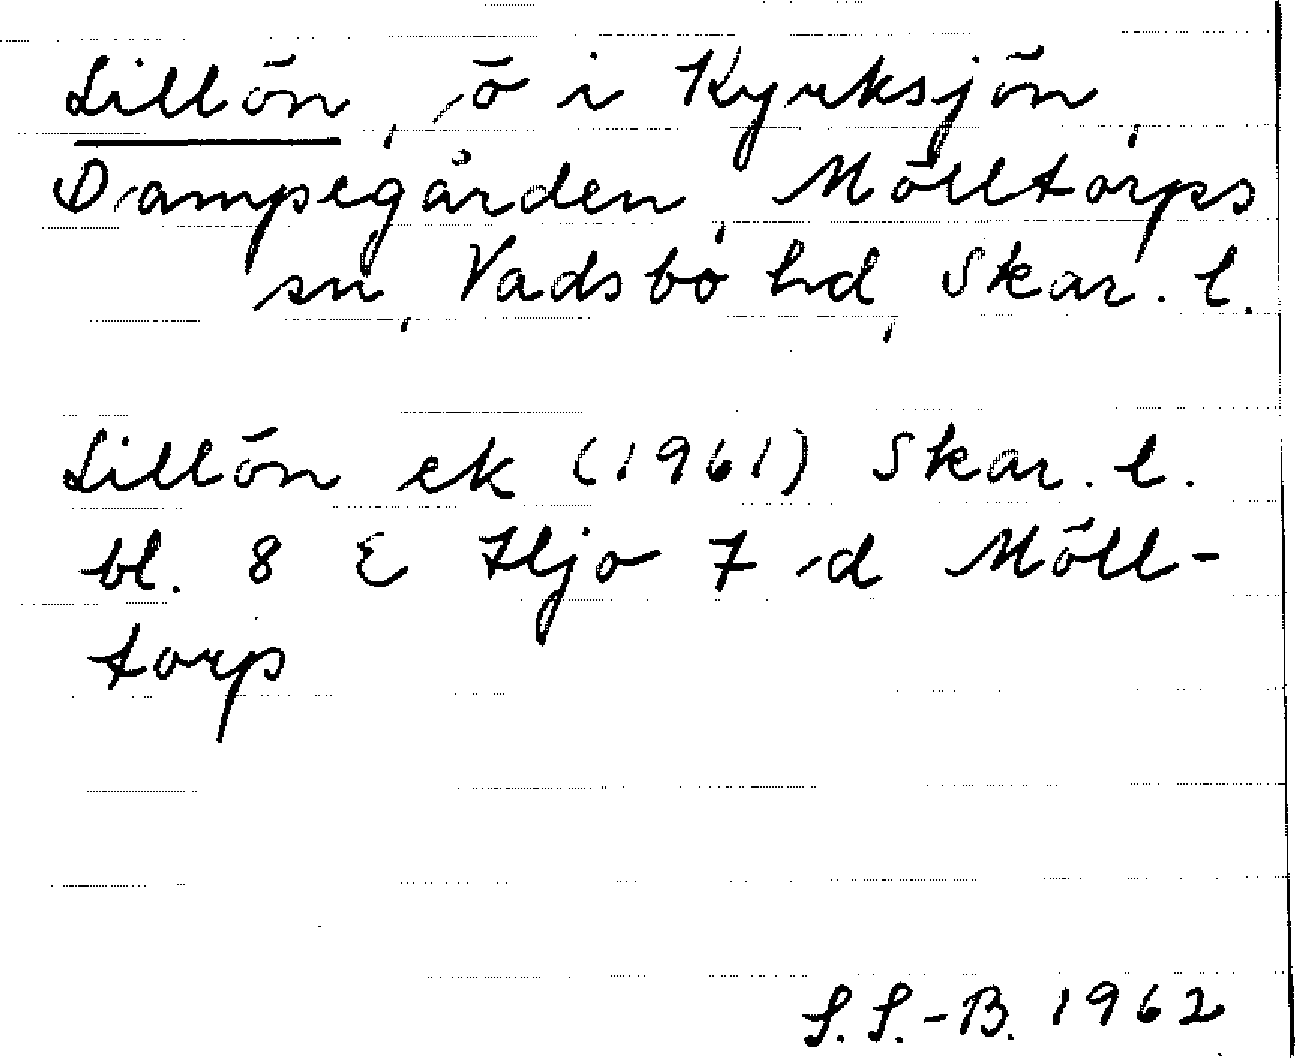 Lillön, ö i Kyrksjön,
Dampegården, Mölltorps
sn, Vadsbo hd, Skar. l.
Lillön ek (1961) Skar. l.
bl. 8 E Hjo 7 d Möll-
torp
S.S.-B. 1962